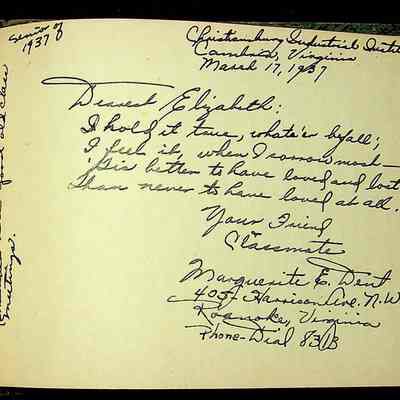 Senior of
1937
Christiansburg Industrial Insti
Cambria, Virginia
March 17, 1937
Dearest Elizabeth:
I hold it true, whate'er befall;
I feel it, when I sorrow most—
'Tis better to have loved and lost
Than never to have loved at all.
Your Friend
&
Classmate
Marguerite E. Dent
405 Harrison Ave. N.W.
Roanoke, Virginia
Phone-Dial 8313
good old class
meetings.